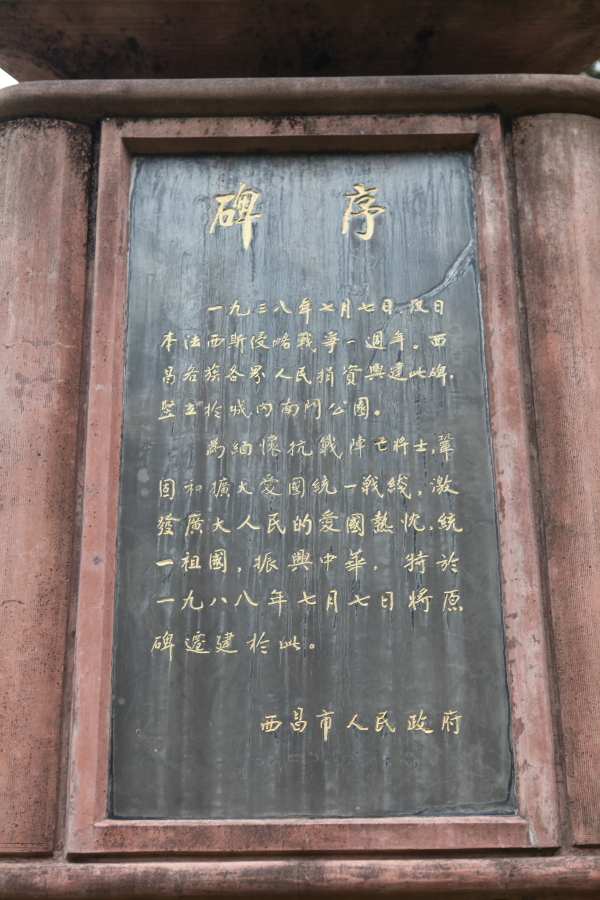 碑 序
一九三八年七月七日,及日
本法西斯侵略戰爭一週年。西
昌各族各界人民捐資興建此碑,
竪立於城內南門公園。
為緬懷抗戰陣亡將士,鞏
固和擴大愛國統一戰綫,激
發廣大人民的愛國熱忱,統
一祖國,振興中華,特於
一九八八年七月七日將原
碑遷建於此。
西昌市人民政府